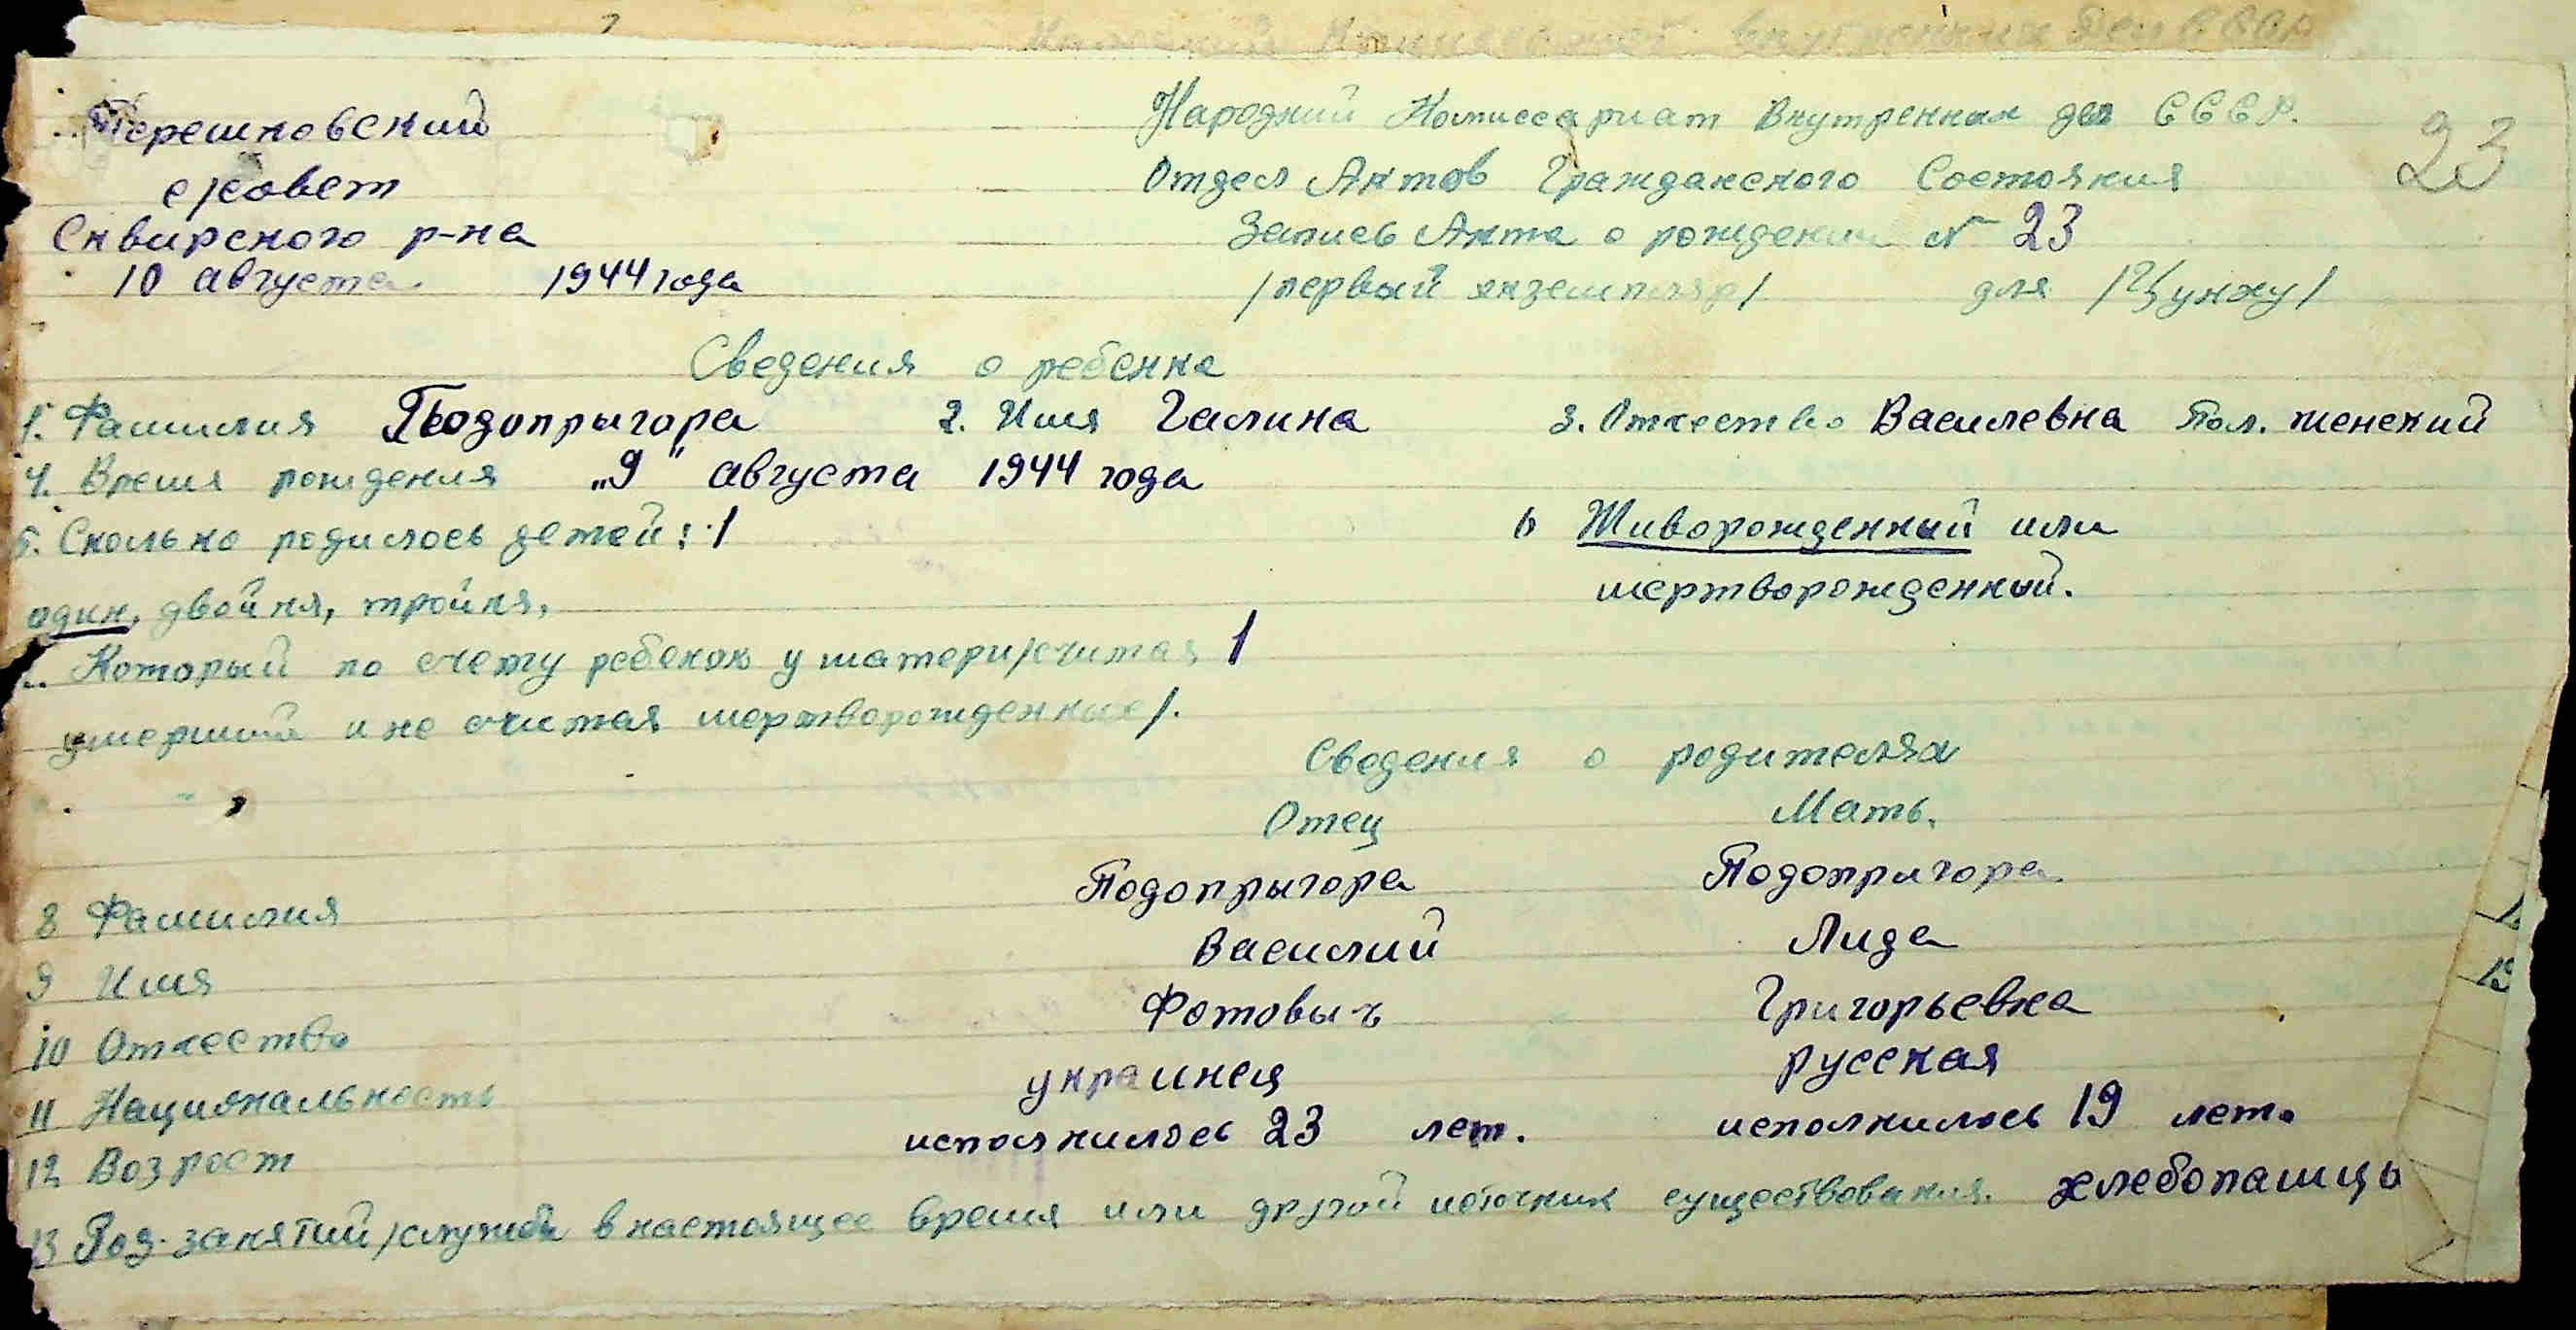 Народный Комиссариат Внутренних дел СССР.
Терешковский
с/совет
Отдел Актов Гражданского Состояния
23
Сквирского р-на
Запись Акта о рождении № 23
10 августа 1944 года
/первый экземпляр/ для /Цунху/
Сведения о ребенке
1. Фамилия Подопрыгора 2. Имя Галина 3. Отчество Василевна Пол. женский
4. Время рождения „9" августа 1944 года
5. Сколько родилось детей: 1
6 Живорожденный или
один, двойня, тройня,
мертворожденный.
Который по счету ребенок у матери/считая 1
умерших и не считая мертворожденных/.
Сведения о родителях
Отец Мать.
8 Фамилия Подопрыгора Подопригора
9 Имя Василий Лида
10 Отчество Фотовыч Григорьевна
11 Национальность украинец русская
12 Возрост исполнилось 23 лет. исполнилось 19 лет.
13 Род-занятий/службы в настоящее время или другой источник существования. хлебопашцы